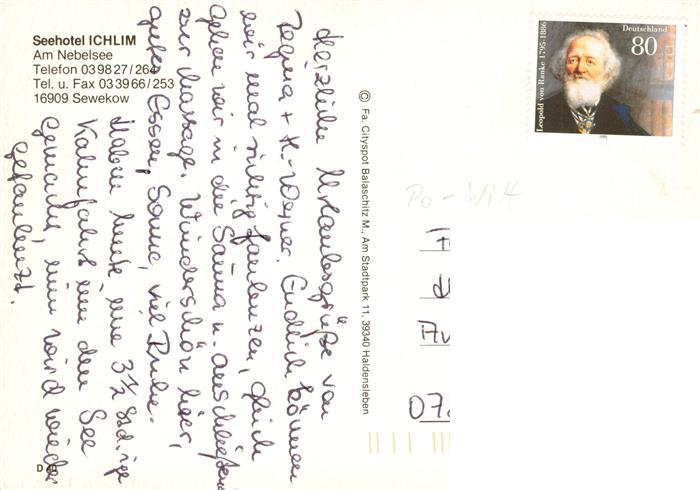 Seehotel ICHLIM
Am Nebelsee
Telefon 039827/264
Tel. u. Fax 033966/253
16909 Sewekow
Herzliche Urlaubsgrüße von
Regina + H.-Werner. Endlich können
wir mal richtig faulenzen, gleich
gehen wir in die Sauna u. anschließend
zur Massage. Wunderschön hier,
gutes Essen, Sonne, viel Ruhe.
Haben heute eine 3½ stdige
Kahnfahrt um den See
gemacht, nun wird wieder
gefaulenzt.
D
© Fa. Cityspot Balaschitz M., Am Stadtpark 11, 39340 Haldensleben
Deutschland
80
Leopold von Ranke 1795-1886
1995
Po-Witt
07.